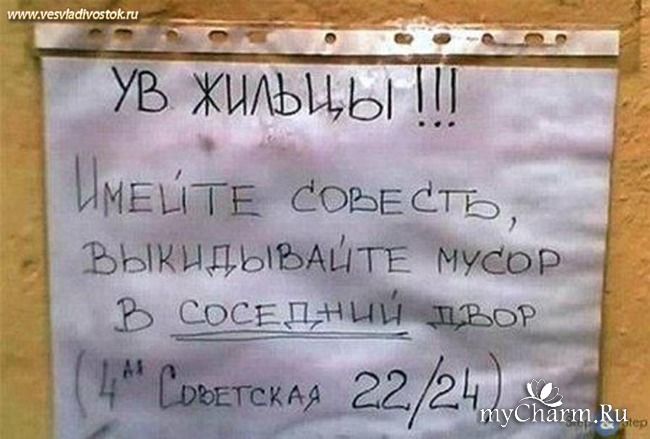 www.vesvladivostok.ru
УВ ЖИЛЬЦЫ!!!
ИМЕЙТЕ СОВЕСТЬ,
ВЫКИДЫВАЙТЕ МУСОР
В СОСЕДНИЙ ДВОР
(4АЯ СОВЕТСКАЯ 22/24)
myCharm.Ru